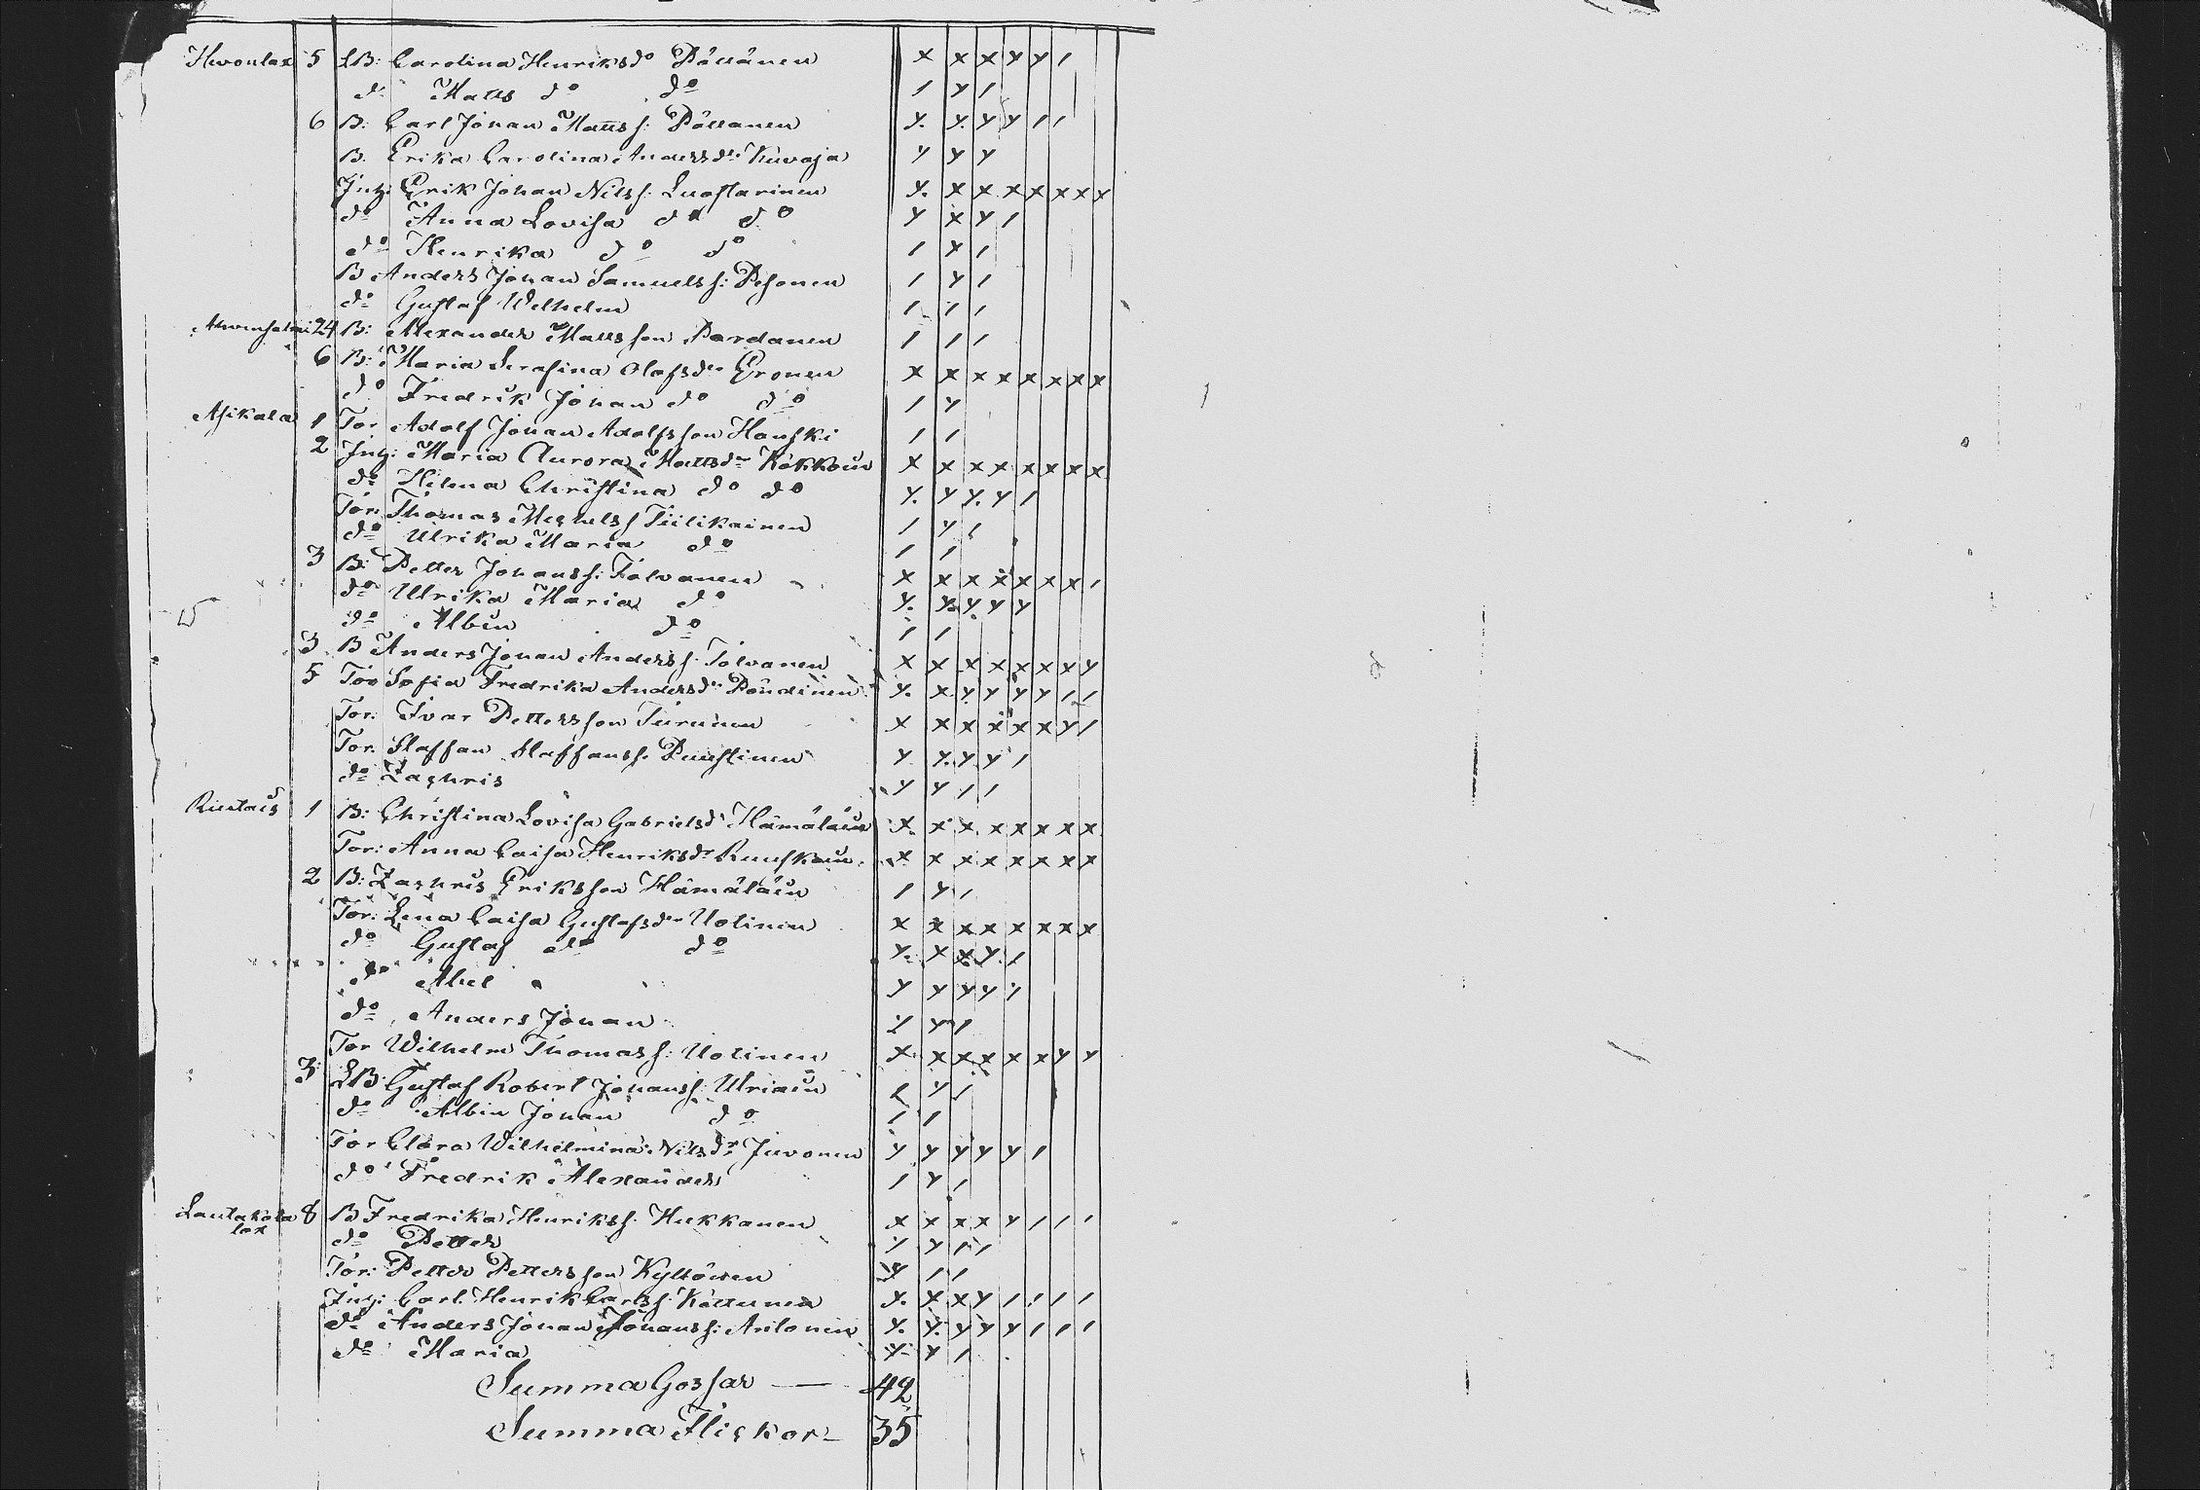 5 LB: Carolina Henriksdo Pöllänen x x x y y /
do Matts do do / y /
6 B: Carl Johan Mattss: Pöllänen y. y. y y / /
B. Erika Carolina Andersdr Kuvaja y y y
Inh: Erik Johan Nilss: Luostarinen y. x x x x x x x
do Anna Lovisa do do y x y /
do Henrika do do / y /
B Anders Johan Samuelss: Pesonen / y /
do Gustaf Wilhelm / / /
24 B: Alexander Mattsson Pardanen / / /
6 B: Maria Serafina Olofsdr Eronen x x x x x x x x
do Fredrik Johan do do / y
Asikala 1 Tor Adolf Johan Adolfsson Hauski / /
2 Inh: Maria Aurora Mattsdr Kokkoin x x x x x x x x
do Hilma Christina do do y. y y. y /
Tor: Thomas Michelss Tiilikainen / y /
do Ulrika Maria do / /
3 B: Petter Johanss: Tolvanen x x x x x x x /
do Ulrika Maria do y. y. y. y y
do Albin do / /
3 B Anders Johan Anderss: Tolvanen x x x x x x y y
5 Tor Sofia Fredrika Andersdr y. x y y y y / /
Tor: Ivar Pettersson Turunen x x x x x x y /
Tor. Staffan Staffanss. Puustinen y y. y y /
do Zachris y y / /
1 B: Christina Lovisa Gabrielsd Hämäläin x. x x x x x x x
Tor: Anna Caisa Henriksdr Ruuskain x x x x x x x x
2 B: Zachris Eriksson Hämäläin / y /
Tor: Lena Caisa Gustafsdr Uotinen x x x x x x x x
do Gustaf do do y. x x y. /
do Abel y y y y /
do Anders Johan y y /
Tor Wilhelm Thomass: Uotinen x x x x x x y y
3 LB Gustaf Robert Johanss: Ulriain / y /
do Albin Johan do / /
Tor Clara Wilhelmina Nilsdr Juvonen y y y y y y /
do Fredrik Alexander / y /
Lautakota 8 B Fredrika Henrikss. Hukkanen x x x x y / / /
lax do Petter y y / /
Tor: Petter Pettersson Kyllönen y / /
Inh: Carl Henrik Carlss: Kettunen y. x x y / / / /
do Anders Johan Johanss: Antonen y. y. y y y / / /
do Maria y y /
Summa Gossar — 42
Summa Flickor — 35